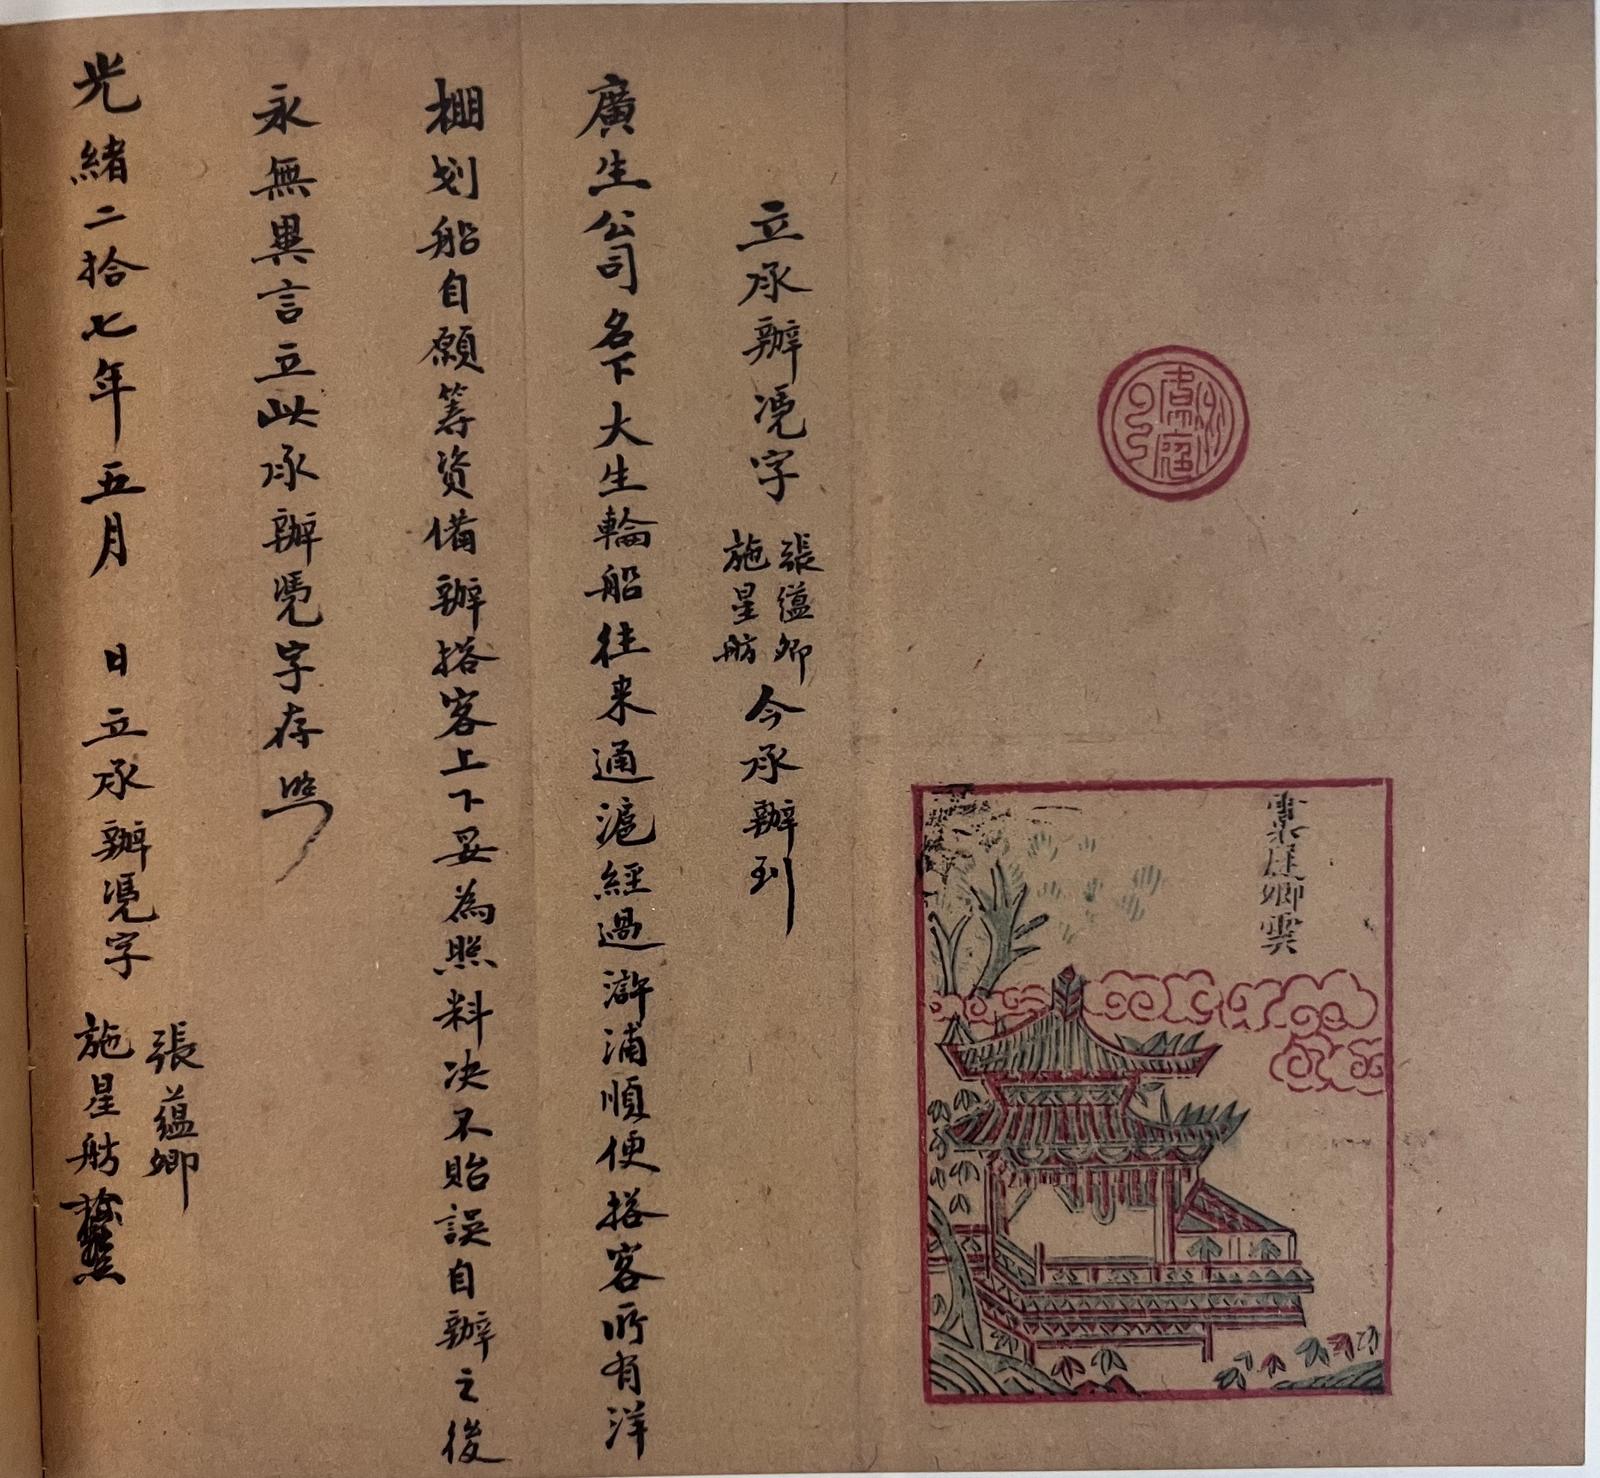 卿雲
立承辦凴字
張蘊卿
施星舫
今承辦到
廣生公司名下大生輪船往来通滬經過滸浦順便搭客所有洋
棚划船自願籌資備辦搭客上下妥為照料決不貽誤自辦之後
永無異言立此承辦凴字存照
光緒二拾七年五月 日立承辦凴字
張蘊卿
施星舫